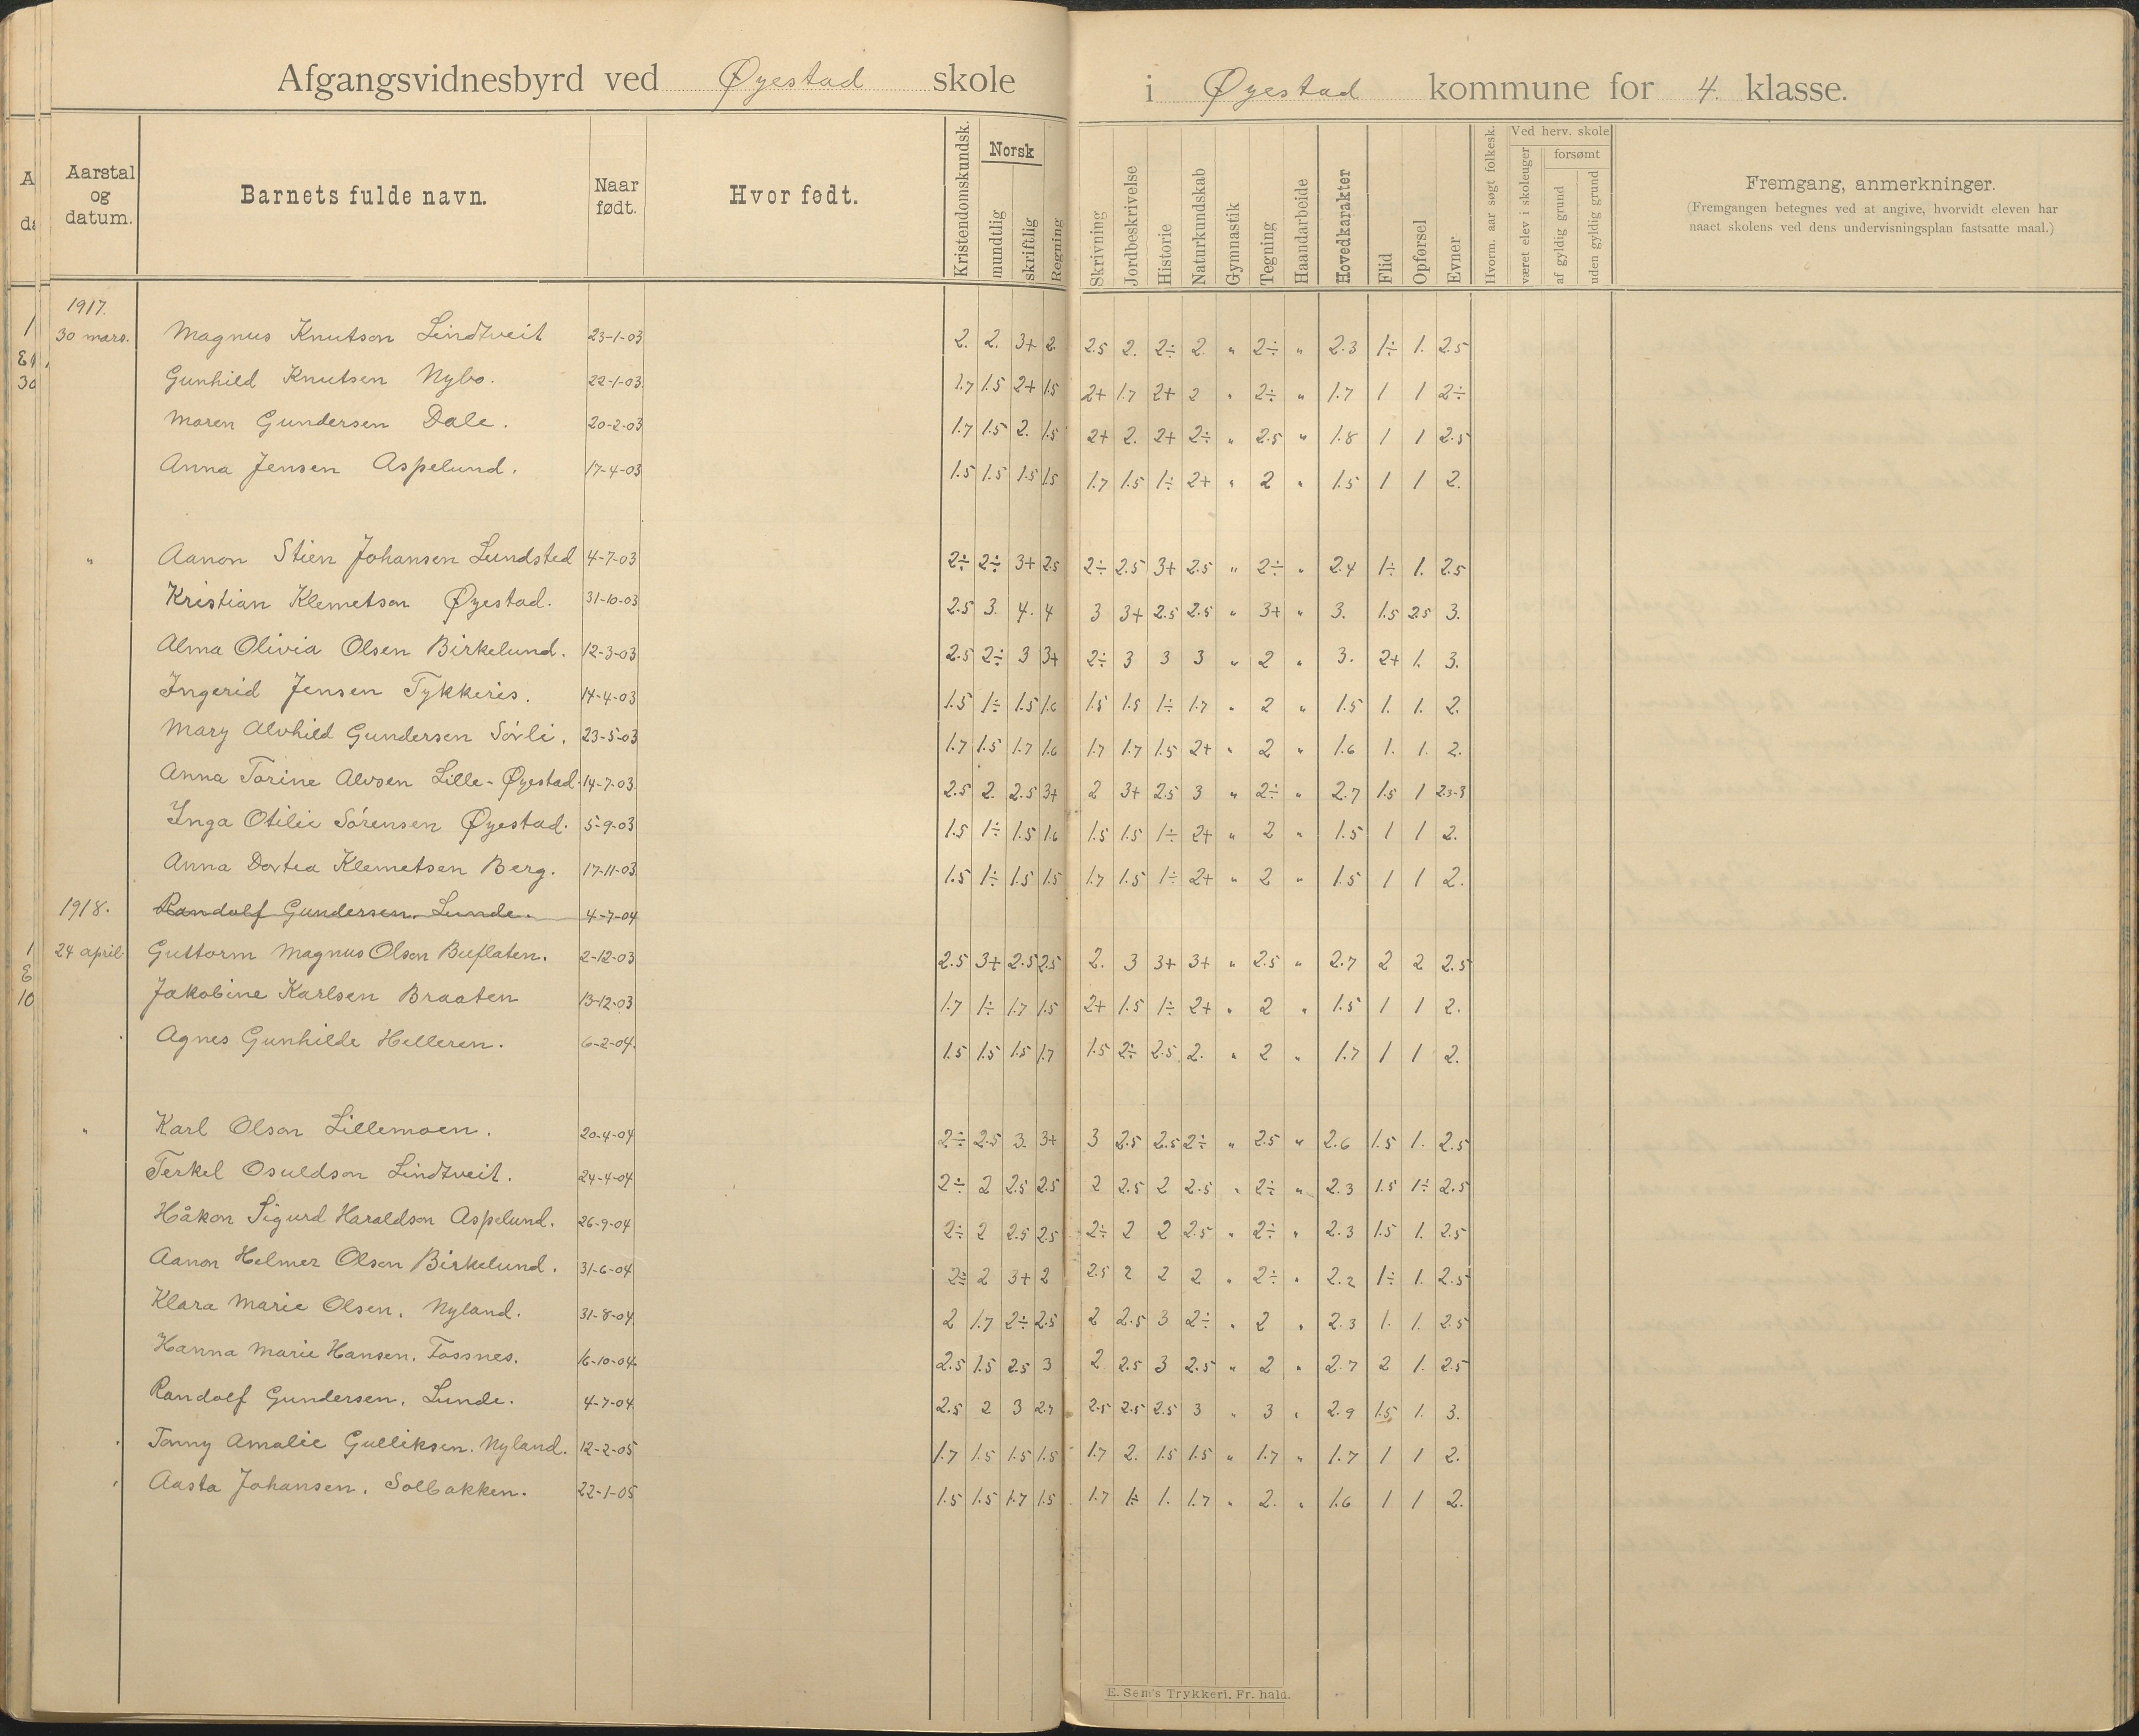 Afgangsvidnesbyrd ved Øyestad skole i Øyestad kommune for 4. klasse.
Aarstal og datum. Barnets fulde navn. Naar født. Hvor født. Kristendomskundsk. Norsk mundtlig skriftlig Regning Skrivning Jordbeskrivelse Historie Naturkundskab Gymnastik Tegning Haandarbeide Hovedkarakter Flid Opførsel Evner Hvorm. aar søgt folkesk. Ved herv. skole været elev i skoleuger forsømt af gyldig grund uden gyldig grund Fremgang, anmerkninger.
(Fremgangen betegnes ved at angive, hvorvidt eleven har
naaet skolens ved dens undervisningsplan fastsatte maal.)
1917.
30 mars. Magnus Knutson Lindtveit 23-1-03 2. 2. 3+ 2 2.5 2. 2÷ 2. " 2÷ " 2.3 1÷ 1. 2.5
Gunhild Knutsen Nybo. 22-1-03 1.7 1.5 2+ 1.5 2+ 1.7 2+ 2 " 2÷ " 1.7 1 1 2÷
Maren Gundersen Dale. 20-2-03 1.7 1.5 2. 1.5 2+ 2. 2+ 2÷ " 2.5 " 1.8 1 1 2.5
Anna Jensen Aspelund. 17-4-03 1.5 1.5 1.5 1.5 1.7 1.5 1÷ 2+ " 2 " 1.5 1 1 2.
" Aanon Stien Johansen Lundsted 4-7-03 2÷ 2÷ 3+ 2.5 2÷ 2.5 3+ 2.5 " 2÷ " 2.4 1÷ 1. 2.5
Kristian Klemetson Øyestad. 31-10-03 2.5 3. 4. 4 3 3+ 2.5 2.5 " 3+ " 3. 1.5 2.5 3.
Alma Olivia Olsen Birkelund. 12-3-03 2.5 2÷ 3 3+ 2÷ 3 3 3 " 2 " 3. 2+ 1. 3.
Ingerid Jensen Tykkeris. 14-4-03 1.5 1÷ 1.5 1.6 1.5 1.5 1÷ 1.7 " 2 " 1.5 1. 1. 2.
Mary Alvhild Gundersen Sørli. 23-5-03 1.7 1.5 1.7 1.6 1.7 1.7 1.5 2+ " 2 " 1.6 1. 1. 2.
Anna Torine Alvsen Lille-Øyestad. 14-7-03 2.5 2. 2.5 3+ 2 3+ 2.5 3 " 2÷ " 2.7 1.5 1 2.3-3
Inga Otilie Sørensen Øyestad. 5-9-03 1.5 1÷ 1.5 1.6 1.5 1.5 1÷ 2+ " 2 " 1.5 1 1 2.
Anna Dortea Klemetsen Berg. 17-11-03 1.5 1÷ 1.5 1.5 1.7 1.5 1÷ 2+ " 2 " 1.5 1 1 2.
1918. Randolf Gundersen. Lunde. 4-7-04
24 april Guttorm Magnus Olsen Buflaten. 2-12-03 2.5 3+ 2.5 2.5 2. 3 3+ 3+ " 2.5 " 2.7 2 2 2.5
Jakobine Karlsen Braaten 13-12-03 1.7 1÷ 1.7 1.5 2+ 1.5 1÷ 2+ " 2 " 1.5 1 1 2.
Agnes Gunhilde Helleren. 6-2-04. 1.5 1.5 1.5 1.7 1.5 2÷ 2.5 2. " 2 " 1.7 1 1 2.
" Karl Olson Lillemoen. 20-4-04 2÷ 2.5 3. 3+ 3 2.5 2.5 2÷ " 2.5 " 2.6 1.5 1. 2.5
Terkel Osuldson Lindtveit. 24-4-04 2÷ 2 2.5 2.5 2 2.5 2 2.5 " 2÷ " 2.3 1.5 1÷ 2.5
Håkon Sigurd Haraldson Aspelund. 26-9-04 2÷ 2 2.5 2.5 2÷ 2 2 2.5 " 2÷ " 2.3 1.5 1. 2.5
Aanon Helmer Olsen Birkelund. 31-6-04 2÷ 2 3+ 2 2.5 2 2 2 " 2÷ " 2.2 1÷ 1. 2.5
Klara Marie Olsen. Nyland. 31-8-04 2 1.7 2÷ 2.5 2 2.5 3 2÷ " 2 " 2.3 1. 1. 2.5
Hanna Marie Hansen. Fossnes. 16-10-04 2.5 1.5 2.5 3 2 2.5 3 2.5 " 2 " 2.7 2 1. 2.5
Randolf Gundersen. Lunde. 4-7-04 2.5 2 3 2.7 2.5 2.5 2.5 3 " 3 " 2.9 1.5 1. 3.
Tonny Amalie Gulliksen. Nyland. 12-2-05 1.7 1.5 1.5 1.5 1.7 2. 1.5 1.5 " 1.7 " 1.7 1 1 2.
Aasta Johansen. Solbakken. 22-1-05 1.5 1.5 1.7 1.5 1.7 1÷ 1. 1.7 " 2. " 1.6 1 1 2.
E. Sem's Trykkeri, Fr. hald.